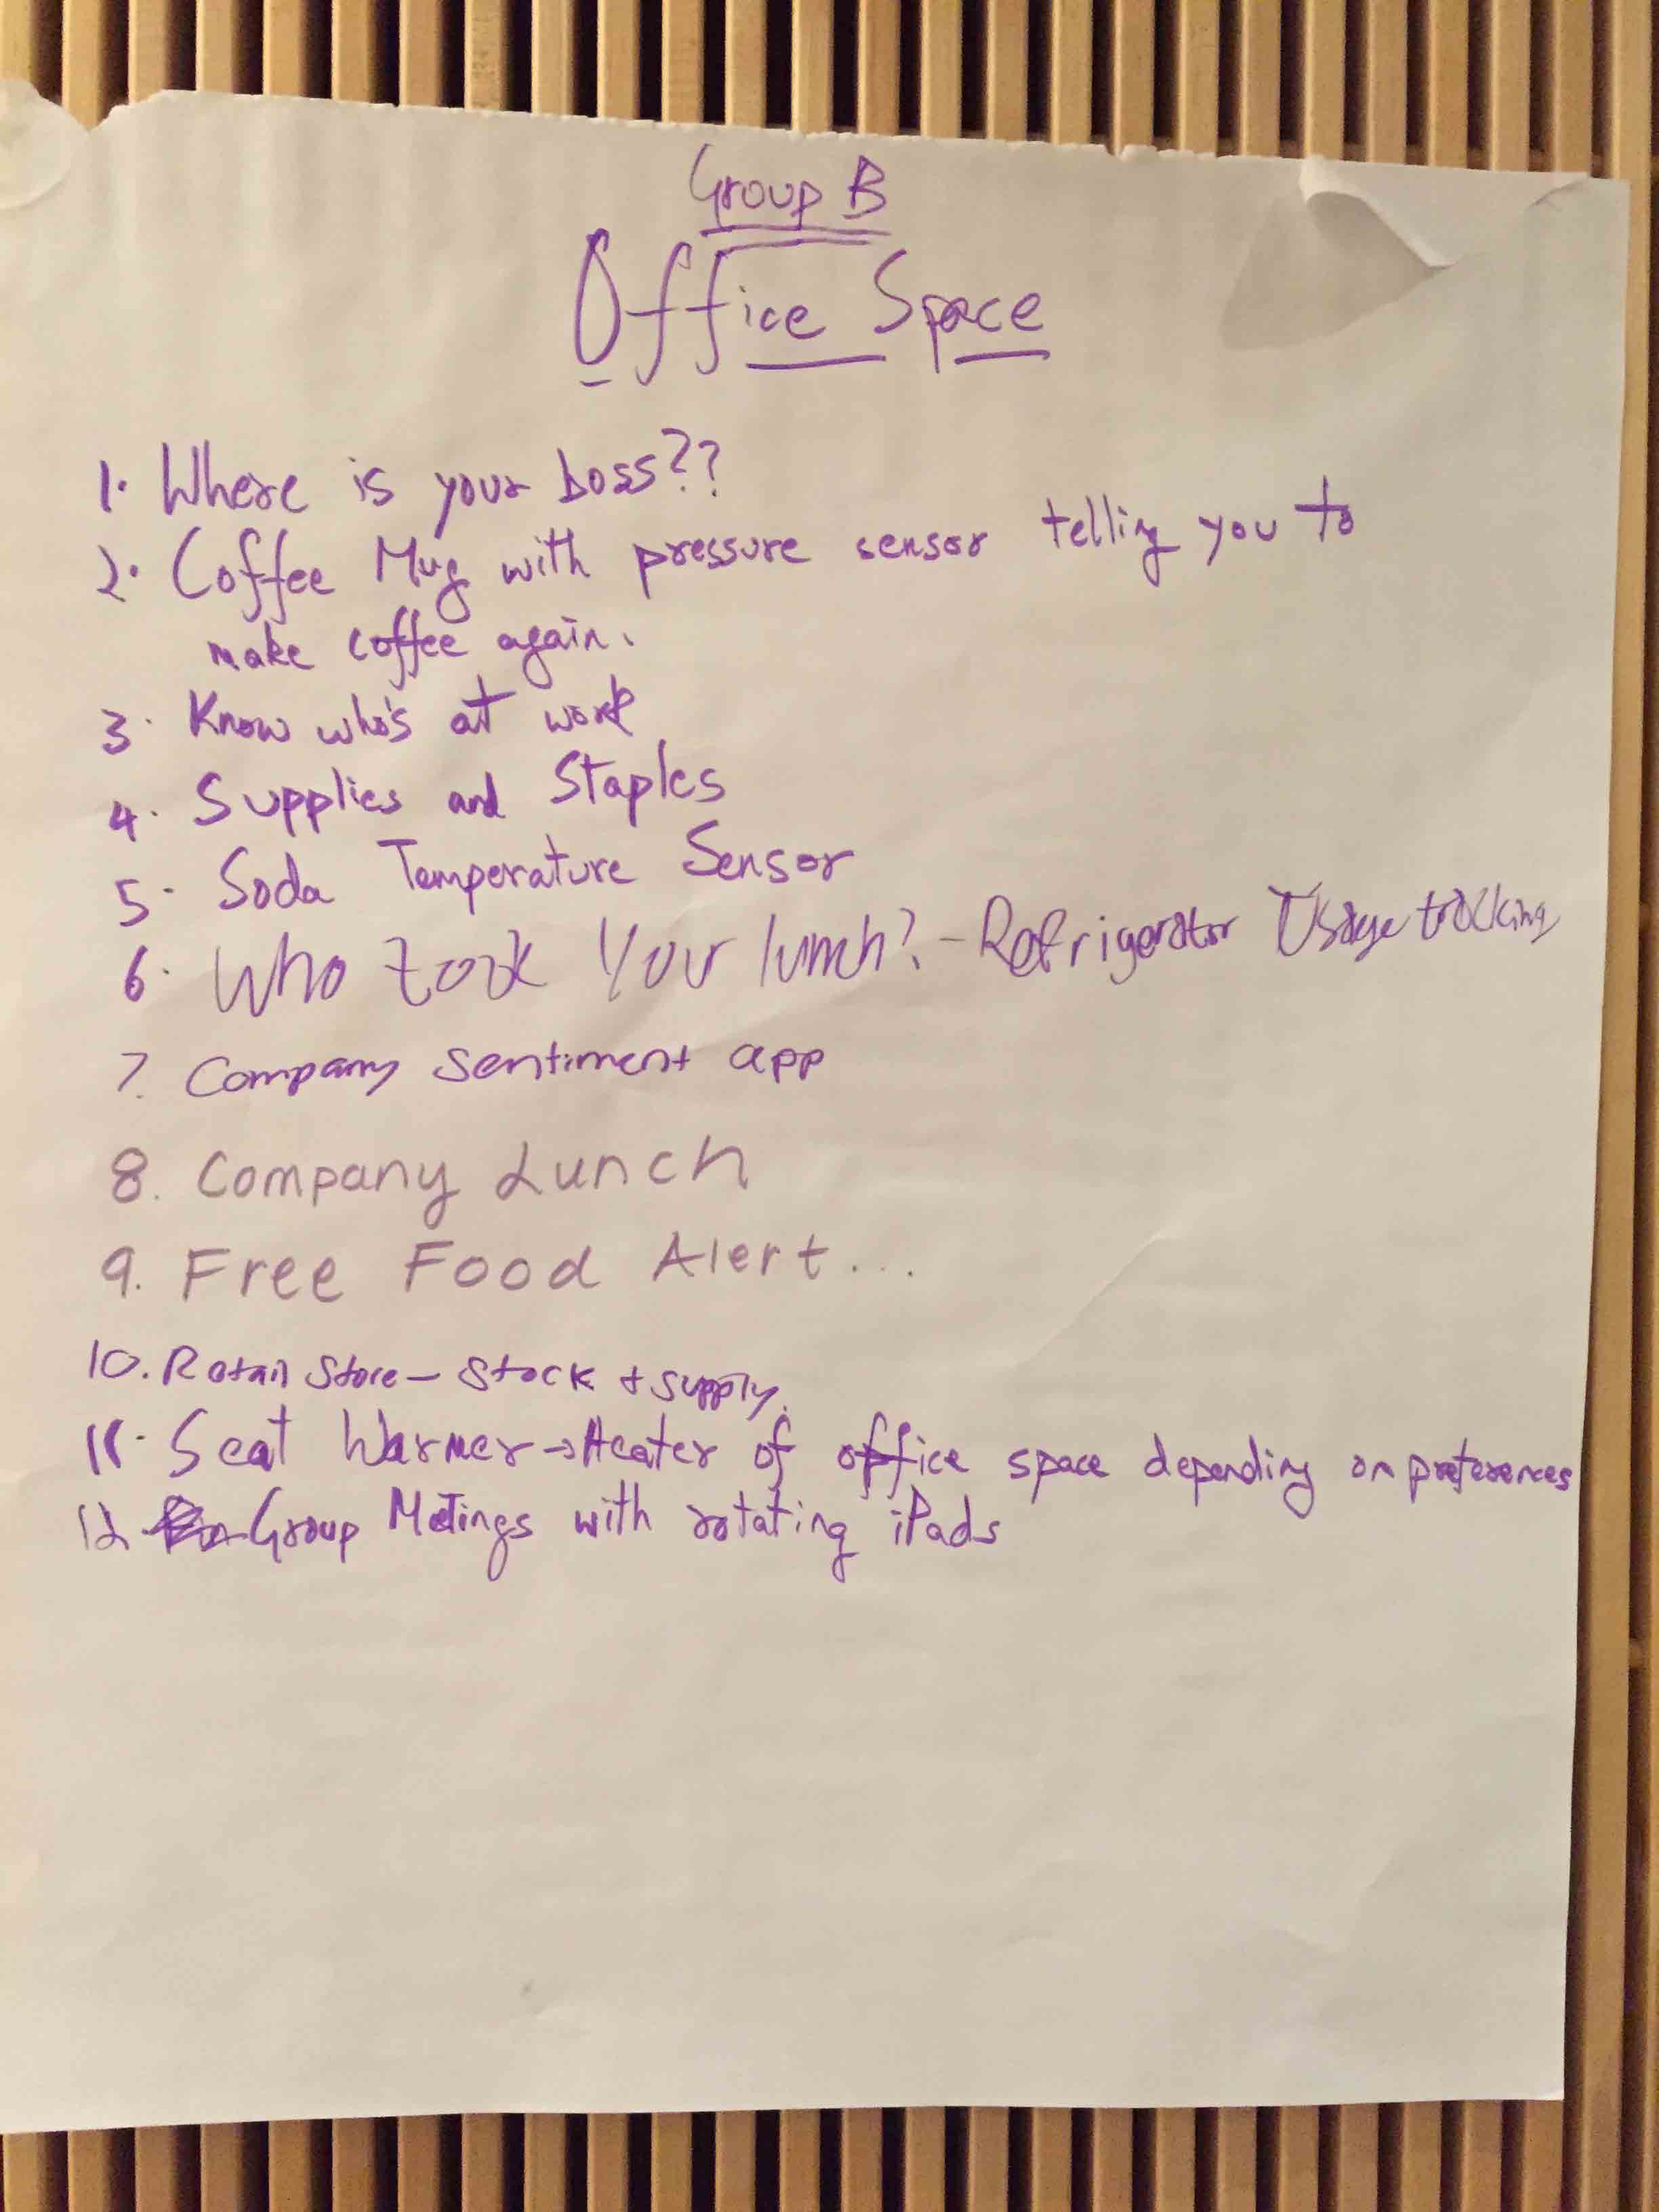 Group B
Office Space
1. Where is your boss??
2. Coffee Mug with pressure sensor telling you to
make coffee again.
3. Know who's at work
4. Supplies and Staples
5. Soda Temperature Sensor
6. Who took Your lunch? - Refrigerator Usage tracking
7. Company Sentiment app
8. Company Lunch
9. Free Food Alert...
10. Retail Store - Stock + Supply.
11. Seat Warmer → Heater of office space depending on preferences
12 Group Meetings with rotating iPads